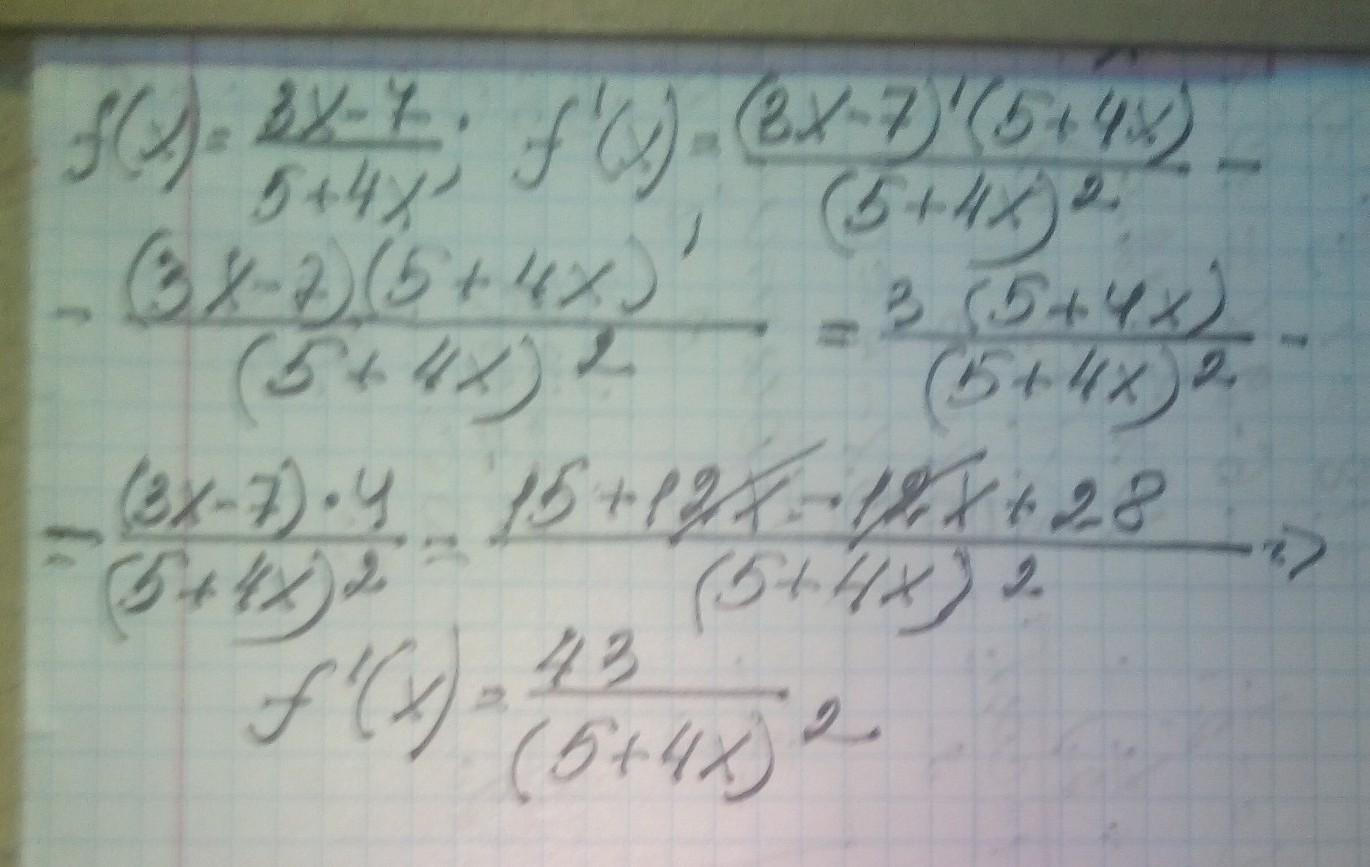 f(x) = (3x-7)/(5+4x); f'(x) = ((3x-7)'(5+4x))/(5+4x)² -
- ((3x-7)(5+4x)')/(5+4x)² = (3(5+4x))/(5+4x)² -
= ((3x-7)·4)/(5+4x)² = (15+12x-12x+28)/(5+4x)² =>
f'(x) = 43/(5+4x)²